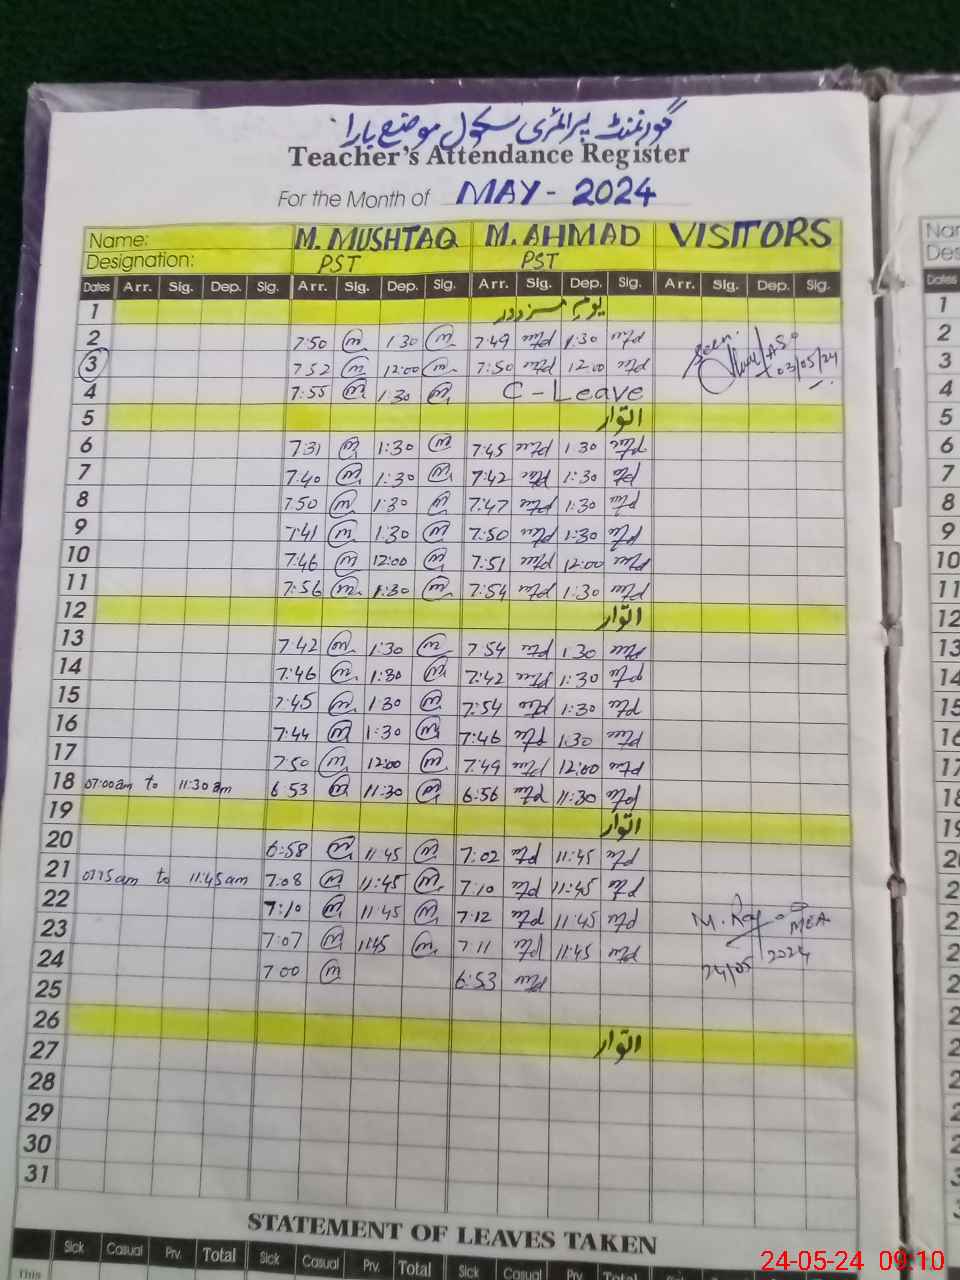 گورنمنٹ پرائمری سکول موضع بارا
Teacher's Attendance Register
For the Month of MAY - 2024
Name: M. MUSHTAQ M. AHMAD VISITORS
Designation: PST PST
Dates Arr. Sig. Dep. Sig. Arr. Sig. Dep. Sig. Arr. Sig. Dep. Sig. Arr. Sig. Dep. Sig.
1 یوم مزدور
2 7:50 1:30 7:49 1:30 Seen
3 7:52 12:00 7:50 12:00 ASO 03/05/24
4 7:55 1:30 C - Leave
5 اتوار
6 7:31 1:30 7:45 1:30
7 7:40 1:30 7:42 1:30
8 7:50 1:30 7:47 1:30
9 7:41 1:30 7:50 1:30
10 7:46 12:00 7:51 12:00
11 7:56 1:30 7:54 1:30
12 اتوار
13 7:42 1:30 7:54 1:30
14 7:46 1:30 7:42 1:30
15 7:45 1:30 7:54 1:30
16 7:44 1:30 7:46 1:30
17 7:50 12:00 7:49 12:00
18 07:00am to 11:30am 6:53 11:30 6:56 11:30
19 اتوار
20 6:58 11:45 7:02 11:45
21 to 11:45am 7:08 11:45 7:10 11:45
22 7:10 11:45 7:12 11:45 M. MEA
23 7:07 1145 7:11 11:45 24/05/2024
24 7:00 6:53
25
26 اتوار
27
28
29
30
31
STATEMENT OF LEAVES TAKEN
Sick Casual Prv. Total Sick Casual Prv. Total Sick Casual Prv. Total Sick
This
Nar
Des
Dates
1
2
3
4
5
6
7
8
9
10
11
12
13
14
15
16
17
18
19
24-05-24 09:10